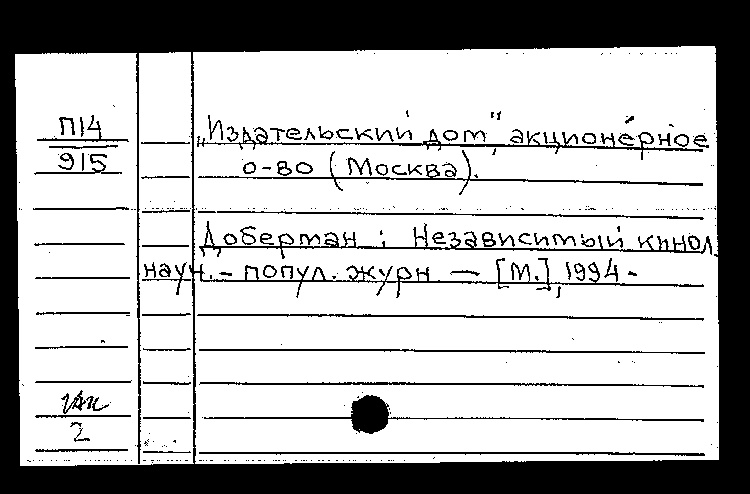 П14
915
„Издательский дом", акционерное
о-во (Москва).
Доберман : Независимый кинол.
науч.- попул. журн — [М.], 1994 -
2